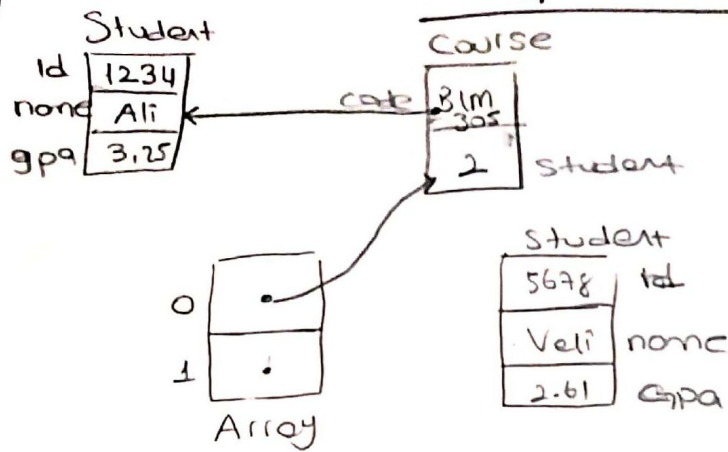 Student
Id 1234
name Ali
gpa 3.25
Course
code BLM
305
2 Student
0
1
Array
Student
5678 Id
Veli name
2.61 Gpa